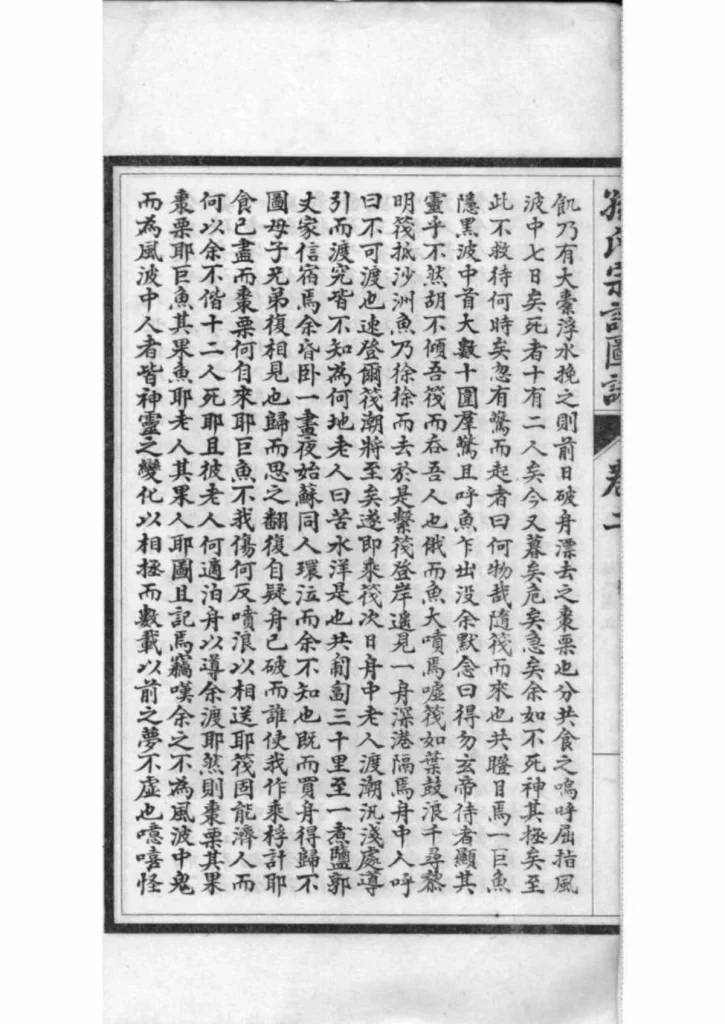 孫氏宗譜圖記
卷二
飢乃有大橐浮水挽之則前日破舟漂去之棗栗也分共食之嗚呼屈指風
波中七日矣死者十有二人矣今又暮矣危矣急矣余如不死神其拯矣至
此不救待何時矣忽有驚而起者曰何物哉隨筏而來也共瞪目焉一巨魚
隱黑波中首大數十圍羣驚且呼魚乍出没余默念曰得勿玄帝侍者顯其
靈乎不然胡不傾吾筏而吞吾人也俄而魚大噴焉噓筏如葉鼓浪千尋黎
明筏抵沙洲魚乃徐徐而去於是繫筏登岸遥見一舟深港隔焉舟中人呼
曰不可渡也速登爾筏潮將至矣遂即乘筏次日舟中老人渡潮汛淺處導
引而渡究皆不知為何地老人曰苦水洋是也共匍匐三十里至一煮鹽郭
丈家信宿焉余昏卧一晝夜始蘇同人環泣而余不知也既而買舟得歸不
圖母子兄弟復相見也歸而思之翻復自疑舟已破而誰使我作乘桴計耶
食已盡而棗栗何自來耶巨魚不我傷何反噴浪以相送耶筏固能濟人而
何以余不偕十二人死耶且彼老人何適泊舟以導余渡耶然則棗栗其果
棗栗耶巨魚其果魚耶老人其果人耶圖且記焉竊嘆余之不為風波中鬼
而為風波中人者皆神靈之變化以相拯而數載以前之夢不虛也噫嘻怪